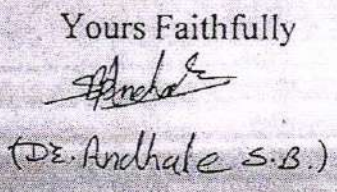 Yours Faithfully
(Dr. Andhale S.B.)